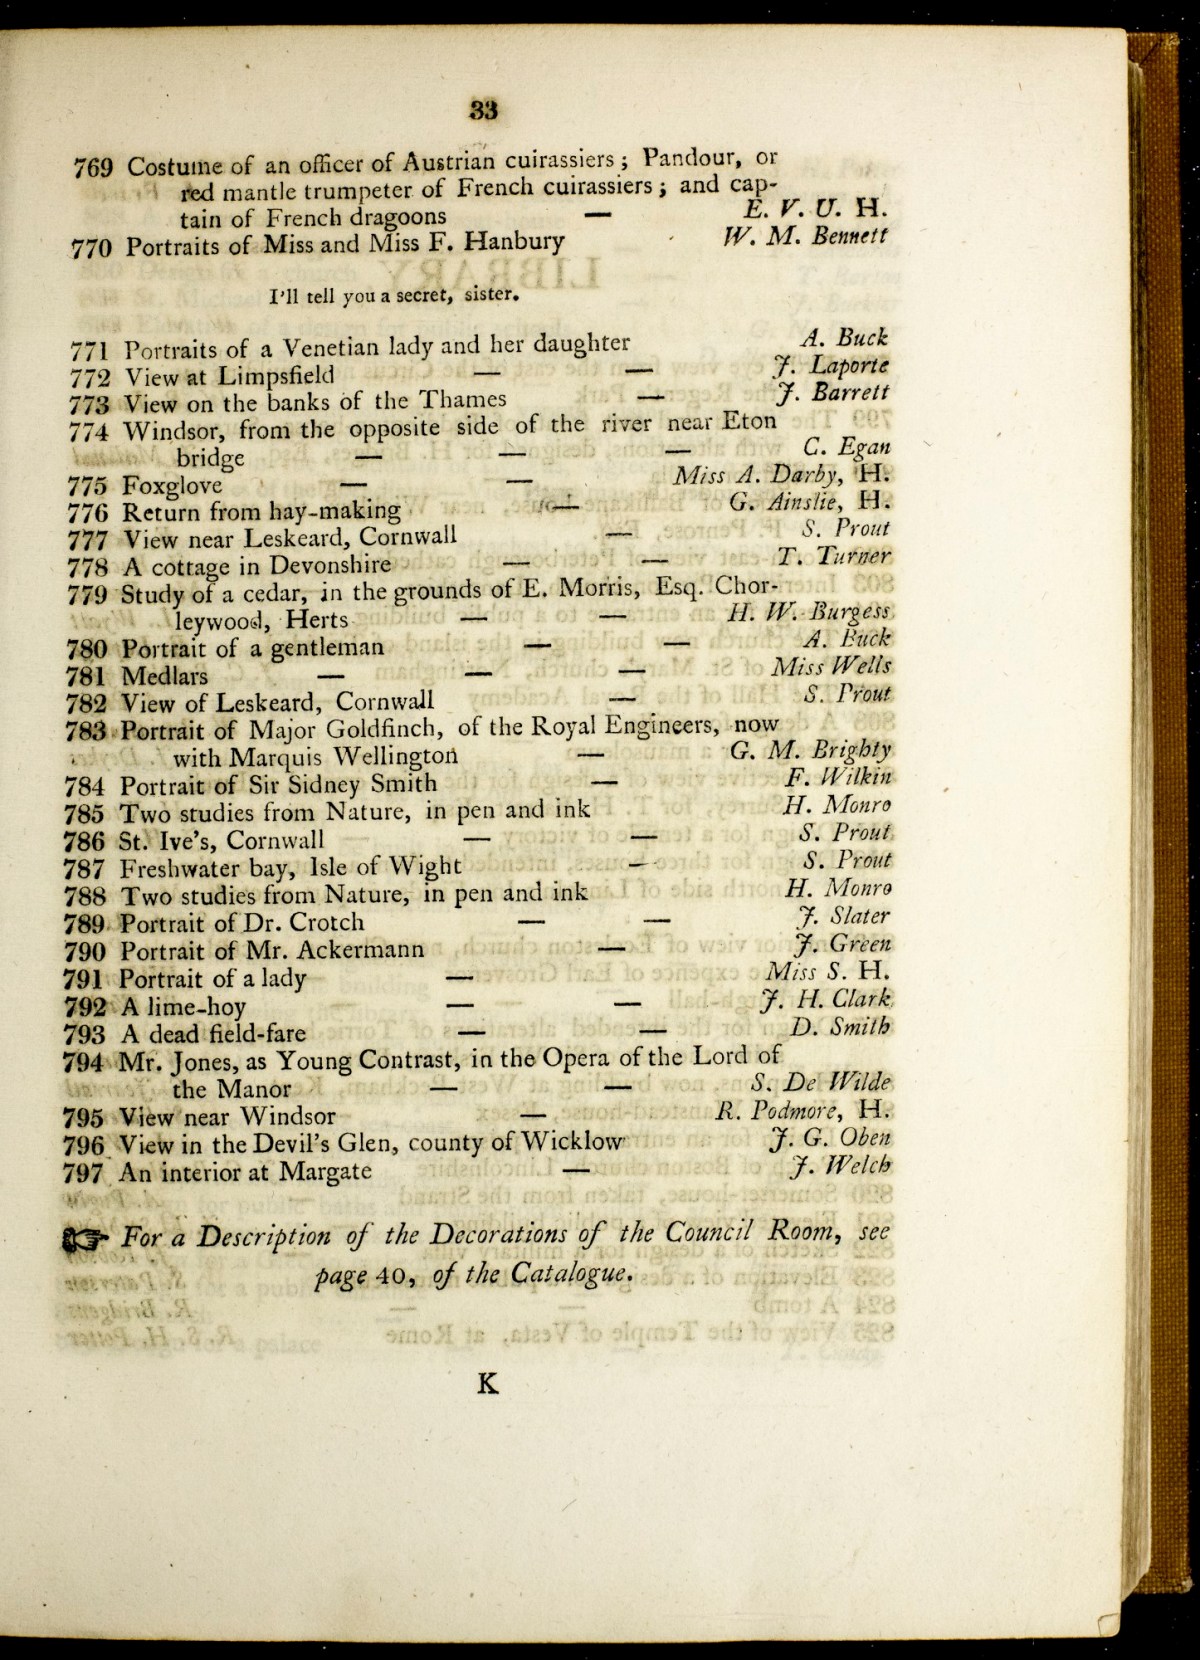 33
769 Costume of an officer of Austrian cuirassiers; Pandour, or
red mantle trumpeter of French cuirassiers; and cap-
tain of French dragoons — E. V. U. H.
770 Portraits of Miss and Miss F. Hanbury W. M. Bennett
I'll tell you a secret, sister.
771 Portraits of a Venetian lady and her daughter A. Buck
772 View at Limpsfield — — J. Laporte
773 View on the banks of the Thames — J. Barrett
774 Windsor, from the opposite side of the river near Eton
bridge — — — C. Egan
775 Foxglove — — Miss A. Darby, H.
776 Return from hay-making — G. Ainslie, H.
777 View near Leskeard, Cornwall — S. Prout
778 A cottage in Devonshire — — T. Turner
779 Study of a cedar, in the grounds of E. Morris, Esq. Chor-
leywood, Herts — — H. W. Burgess
780 Portrait of a gentleman — — A. Buck
781 Medlars — — — Miss Wells
782 View of Leskeard, Cornwall — S. Prout
783 Portrait of Major Goldfinch, of the Royal Engineers, now
with Marquis Wellington — G. M. Brighty
784 Portrait of Sir Sidney Smith — F. Wilkin
785 Two studies from Nature, in pen and ink H. Monro
786 St. Ive's, Cornwall — — S. Prout
787 Freshwater bay, Isle of Wight — S. Prout
788 Two studies from Nature, in pen and ink H. Monro
789 Portrait of Dr. Crotch — — J. Slater
790 Portrait of Mr. Ackermann — J. Green
791 Portrait of a lady — Miss S. H.
792 A lime-hoy — — J. H. Clark
793 A dead field-fare — — D. Smith
794 Mr. Jones, as Young Contrast, in the Opera of the Lord of
the Manor — — S. De Wilde
795 View near Windsor — R. Podmore, H.
796 View in the Devil's Glen, county of Wicklow J. G. Oben
797 An interior at Margate — J. Welch
☞ For a Description of the Decorations of the Council Room, see
page 40, of the Catalogue.
K